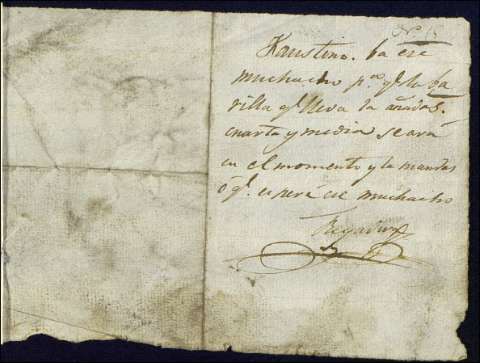 Faustino. ba ese
muchacho pª. qᵉ. la ba
rilla qᵉ. lleva la añadas.
cuarta y media se ará
en el momento y la mandas
o qᵉ. espere ese muchacho